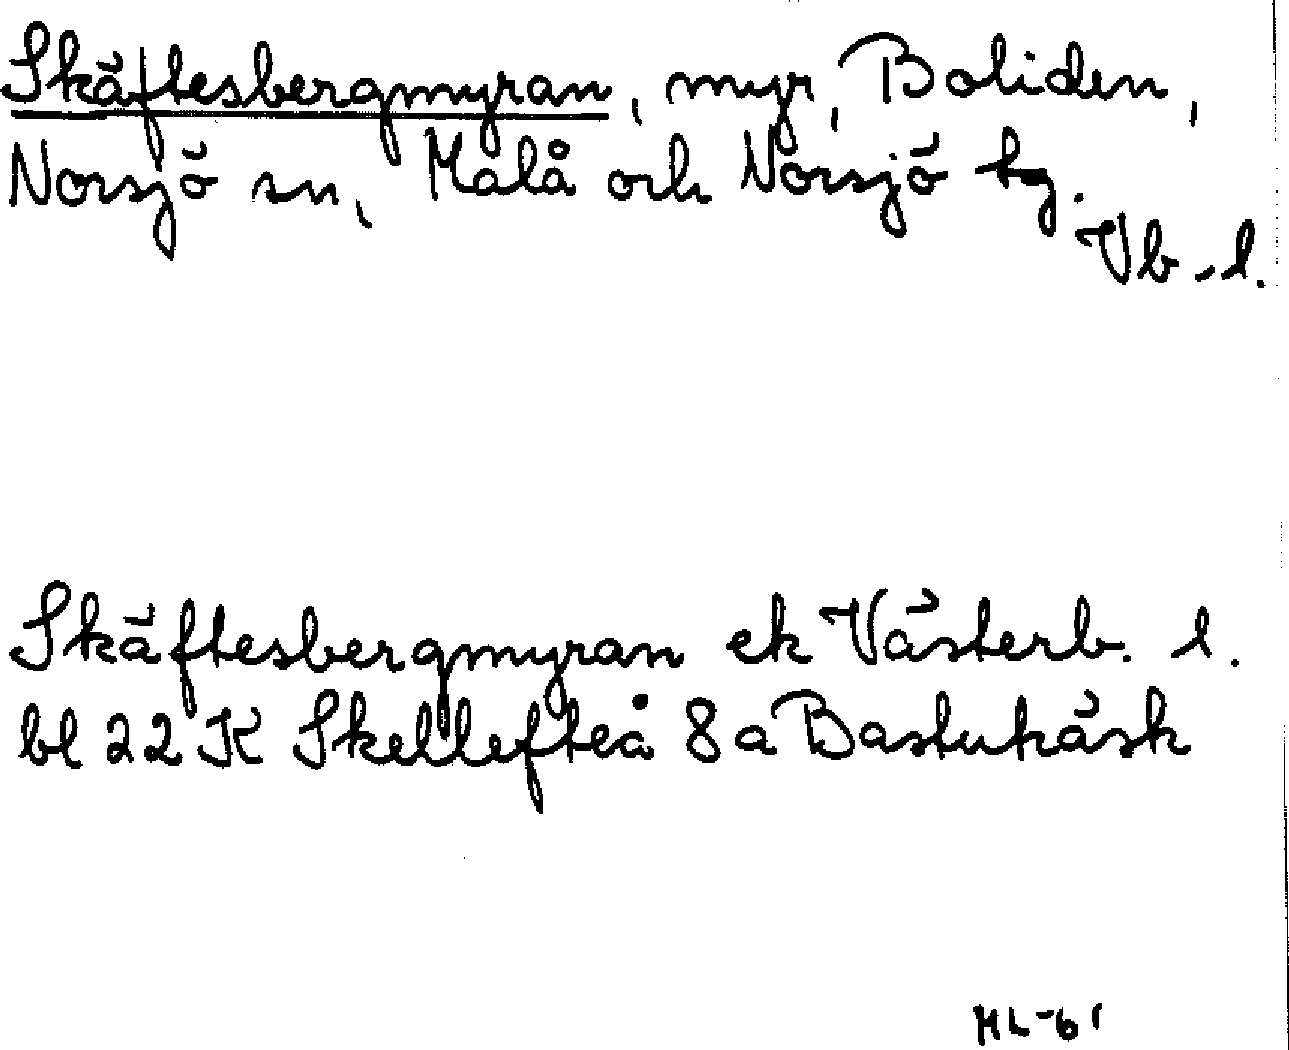 Skäftesbergmyran, myr, Boliden,
Norsjö sn, Malå och Norsjö tg.
Vb.l.
Skäftesbergmyran ek Västerb. l.
bl 22 K Skellefteå 8a Bastuträsk
HL-61